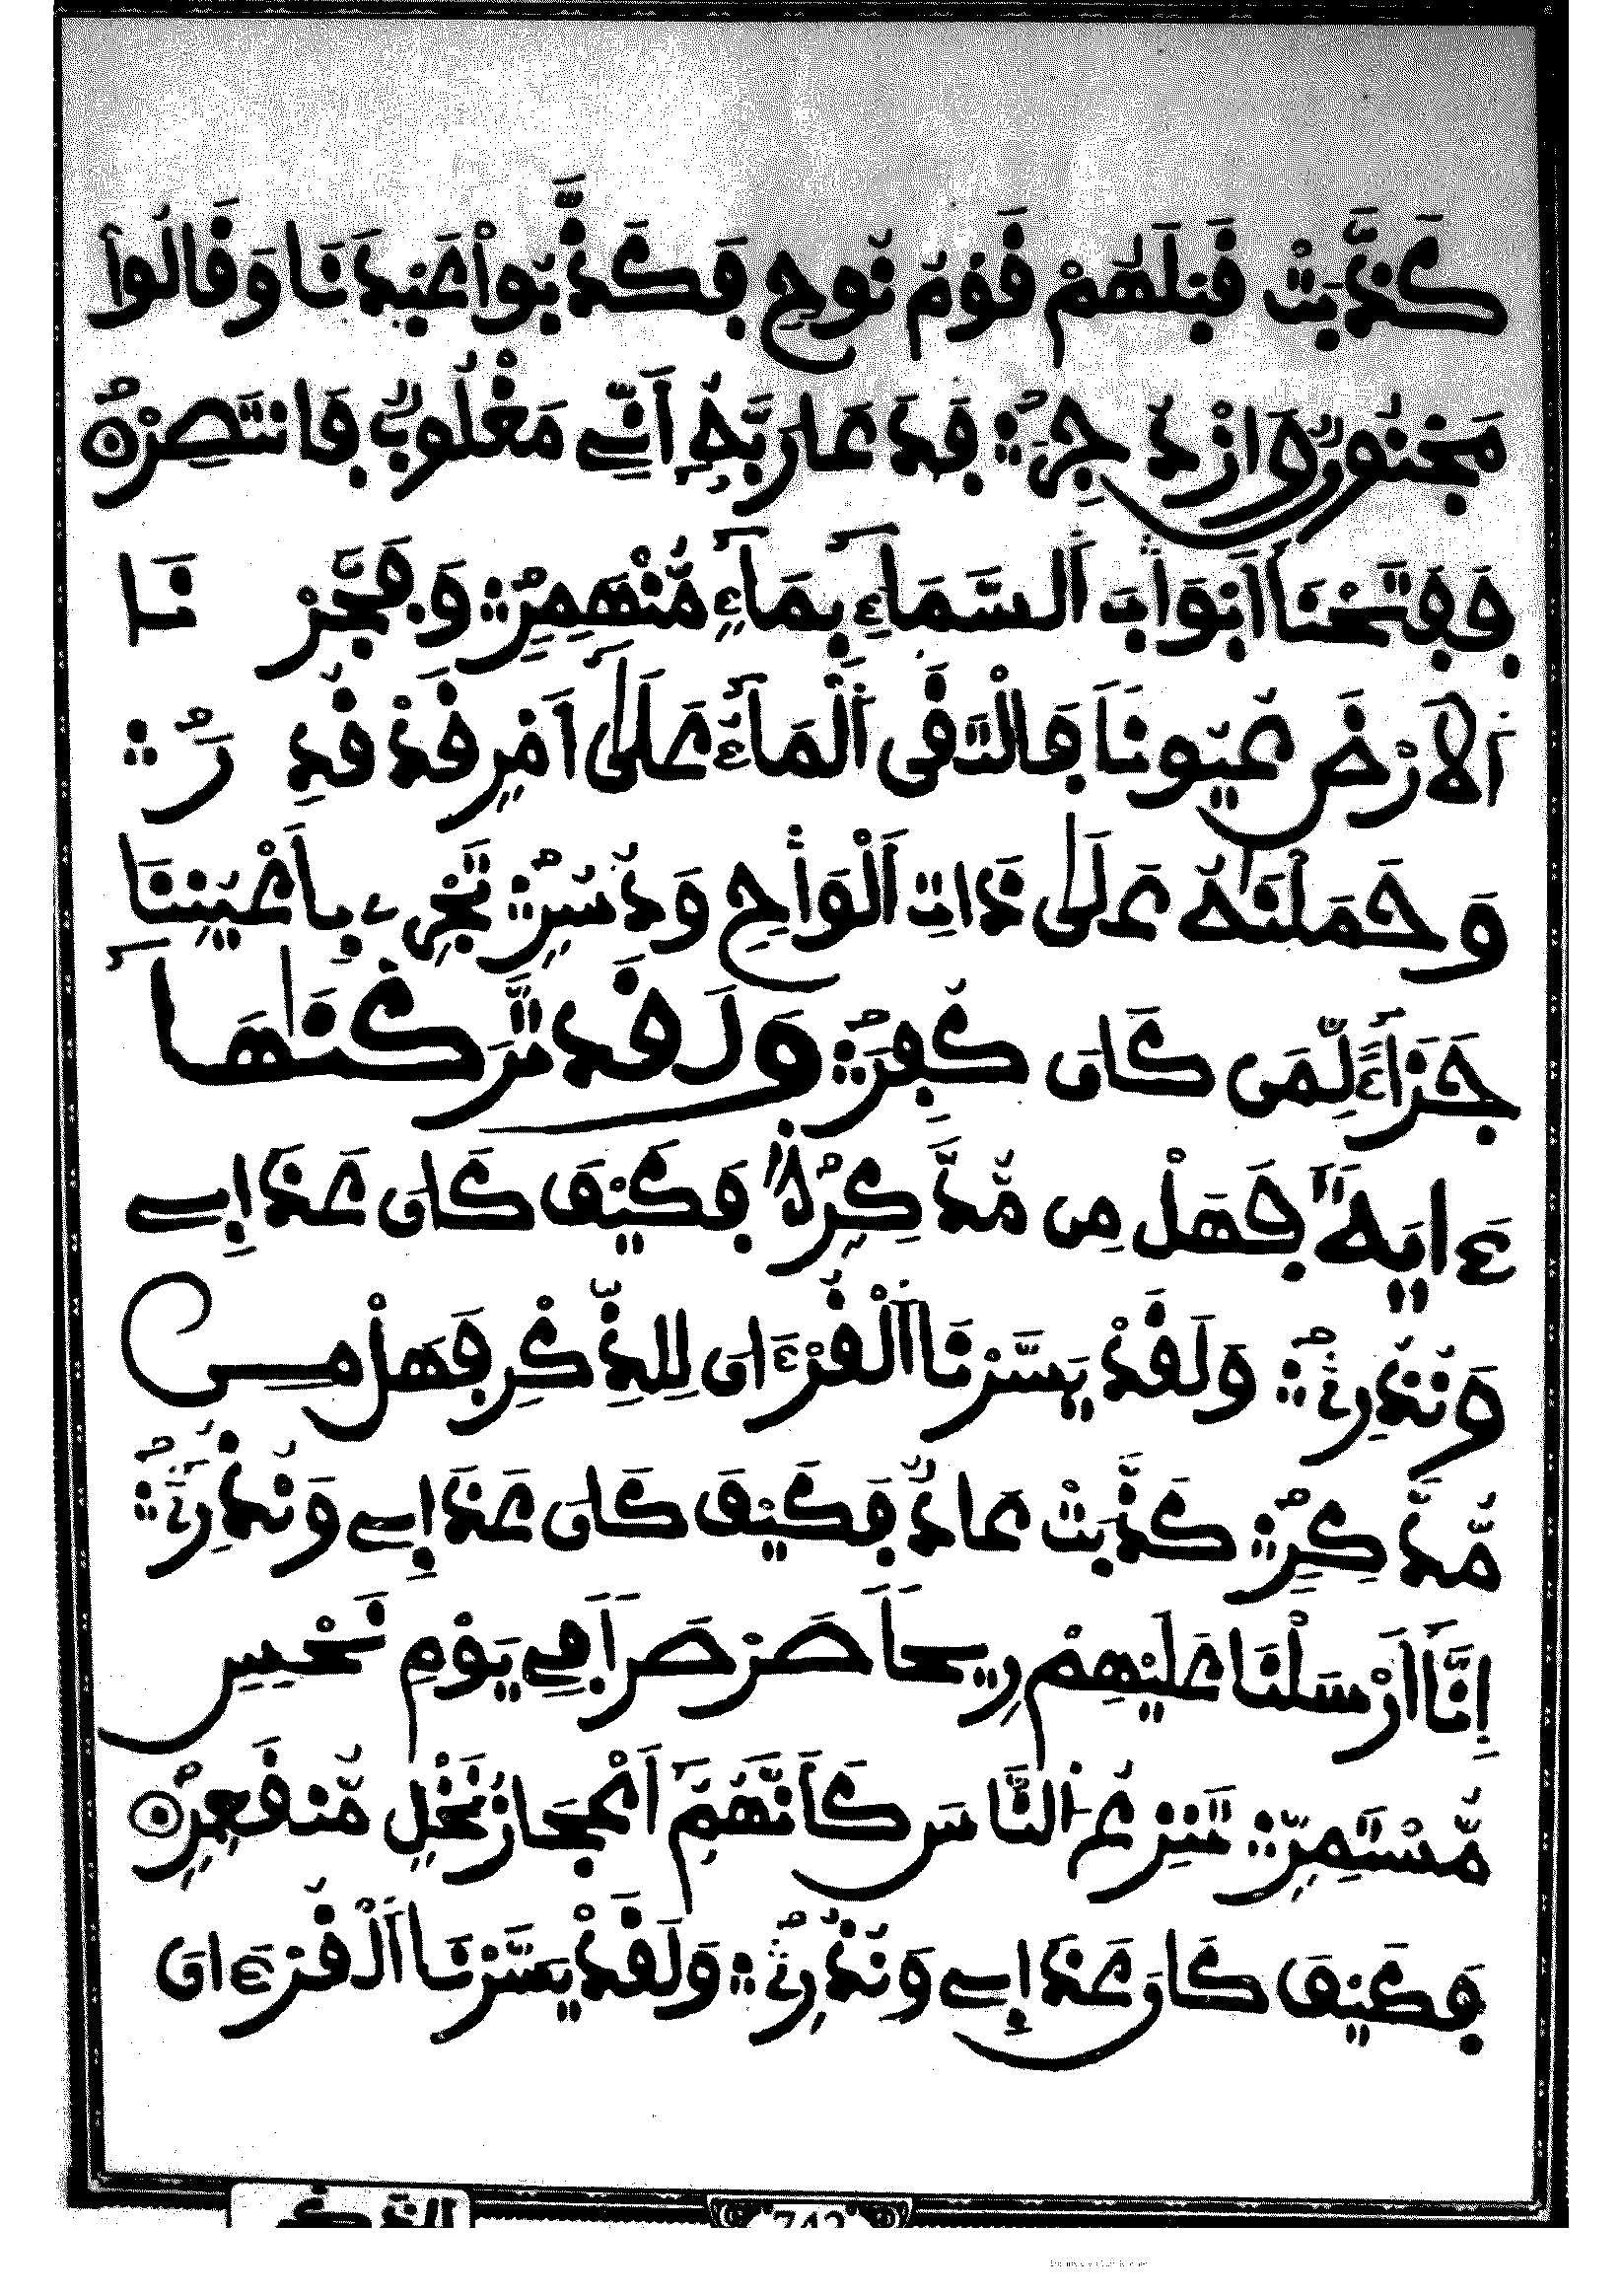 كَذَّبَتْ قَبْلَهُمْ قَوْمُ نُوحٍ فَكَذَّبُواْ عَبْدَنَا وَقَالُواْ
مَجْنُونٌ وَازْدُجِرَ فَدَعَا رَبَّهُ أَنِّے مَغْلُوبٌ فَانتَصِرْ
فَفَتَحْنَا أَبْوَٰبَ اَلسَّمَآءِ بِمَآءٍ مُّنْهَمِرٍ وَفَجَّرْنَا
اَلَارْضَ عُيُوناً فَالْتَقَى اَلْمَآءُ عَلَىٰ أَمْرٍ قَدْ قُدِرَ
وَحَمَلْنَٰهُ عَلَىٰ ذَاتِ أَلْوَٰحٍ وَدُسُرٍ تَجْرِے بِأَعْيُنِنَا
جَزَآءً لِّمَن كَانَ كُفِرَ وَلَقَد تَّرَكْنَٰهَآ
ءَايَةً فَهَلْ مِن مُّدَّكِرٍ فَكَيْفَ كَانَ عَذَابِے
وَنُذُرِۦ وَلَقَدْ يَسَّرْنَا اَلْقُرْءَانَ لِلذِّكْرِ فَهَلْ مِن
مُّدَّكِرٍ كَذَّبَتْ عَادٌ فَكَيْفَ كَانَ عَذَابِے وَنُذُرِۦ
إِنَّآ أَرْسَلْنَا عَلَيْهِمْ رِيحاً صَرْصَراً فِے يَوْمِ نَحْسٍ
مُّسْتَمِرٍّ تَنزِعُ اُلنَّاسَ كَأَنَّهُمُۥٓ أَعْجَازُ نَخْلٍ مُّنقَعِرٍ
فَكَيْفَ كَانَ عَذَابِے وَنُذُرِۦ وَلَقَدْ يَسَّرْنَا اَلْقُرْءَانَ
742